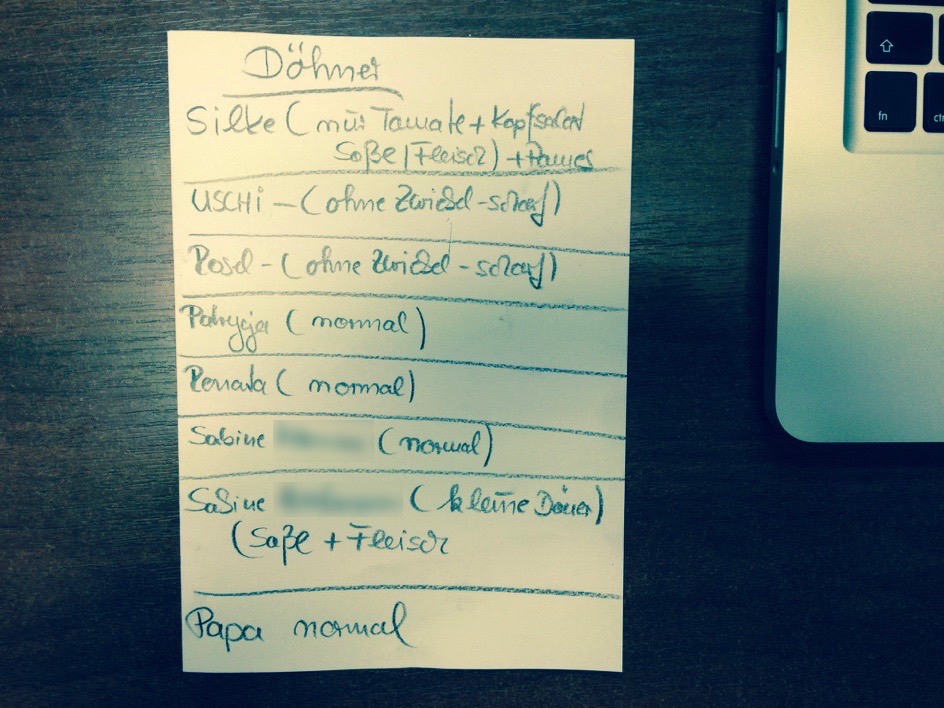 Döhner
Silke (nur Tomate + Kopfsalat
Soße / Fleisch) + Pomes
USCHi - (ohne Zwiebel - scharf)
Rosel - (ohne Zwiebel - scharf)
Patrycja (normal)
Renata (normal)
Sabine (normal)
Sabine (kleine Döner)
(Soße + Fleisch
Papa normal
fn